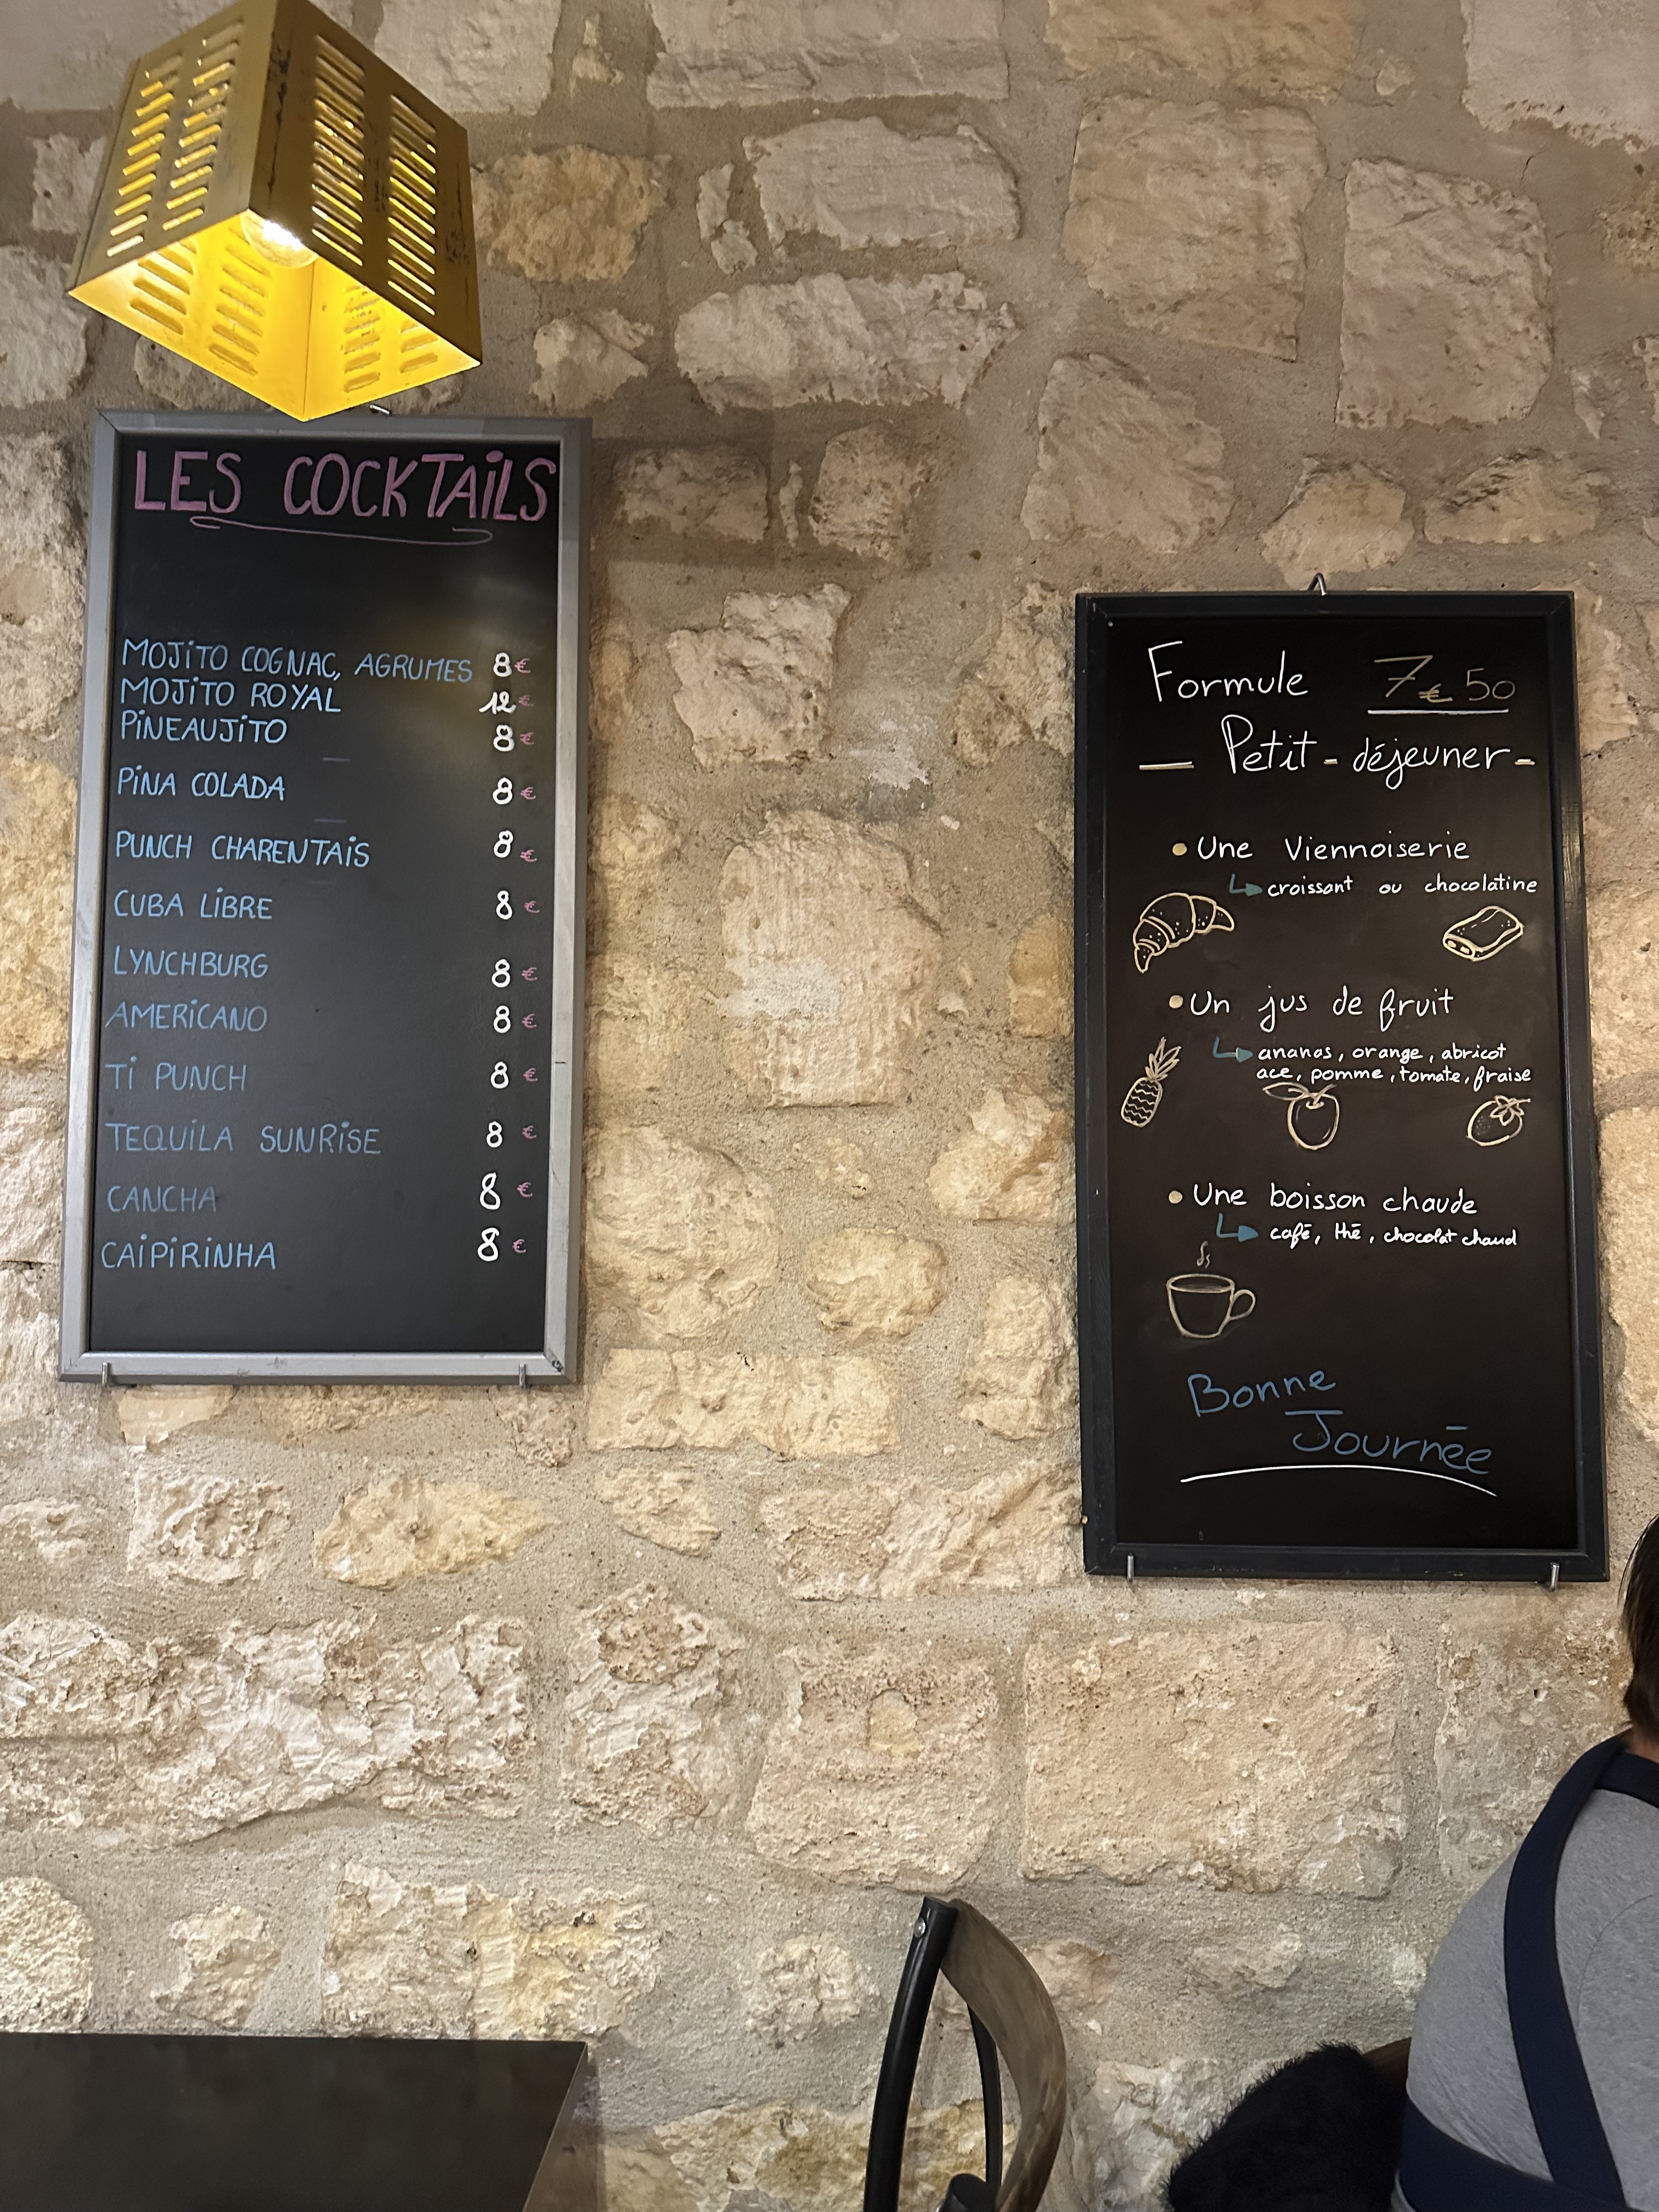 LES COCKTAiLS
MOJiTO COGNAC, AGRUMES 8€
MOJiTO ROYAL 12€
PiNEAUJiTO 8€
PiNA COLADA 8€
PUNCH CHARENTAiS 8€
CUBA LiBRE 8€
LYNCHBURG 8€
AMERiCANO 8€
Ti PUNCH 8€
TEQUiLA SUNRiSE 8€
CANCHA 8€
CAiPiRiNHA 8€
Formule 7€50
— Petit-déjeuner-
• Une Viennoiserie
croissant ou chocolatine
• Un jus de fruit
ananas, orange, abricot
ace, pomme, tomate, fraise
• Une boisson chaude
café, thé, chocolat chaud
Bonne
Journée